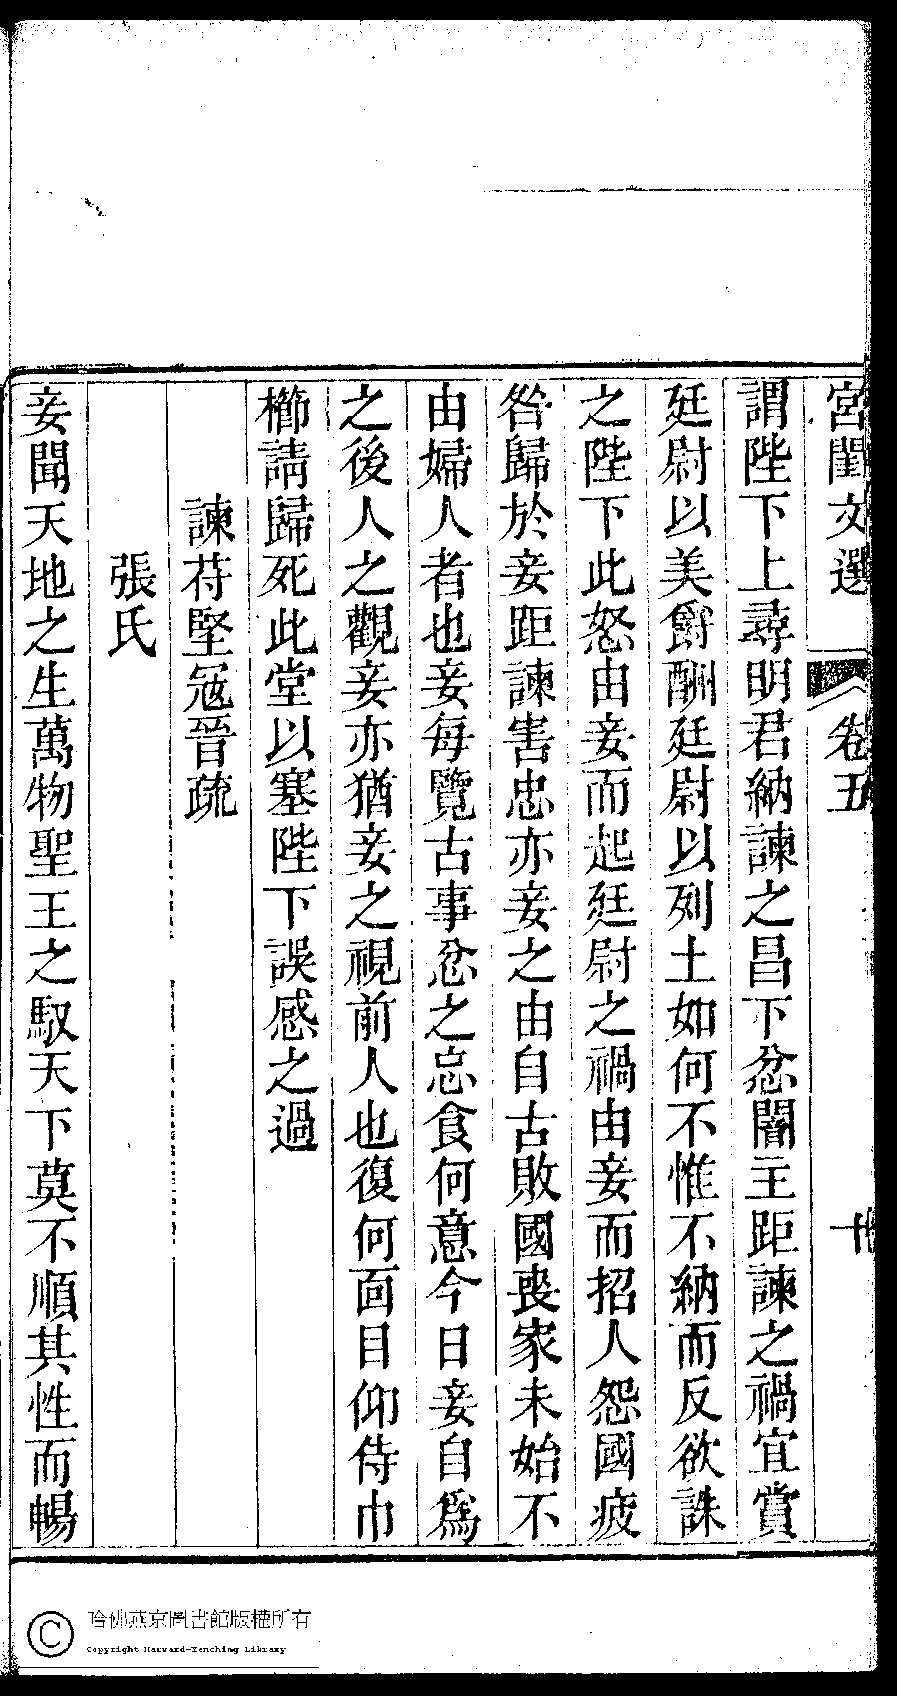 宮閨文選 卷五 十
謂陛下上尋明君納諫之昌下忿闇主距諫之禍宜賞
廷尉以美爵酬廷尉以列土如何不惟不納而反欲誅
之陛下此怒由妾而起廷尉之禍由妾而招人怨國疲
咎歸於妾距諫害忠亦妾之由自古敗國喪家未始不
由婦人者也妾每覽古事忿之忘食何意今日妾自爲
之後人之觀妾亦猶妾之視前人也復何面目仰侍巾
櫛請歸死此堂以塞陛下誤感之過
諫苻堅寇晉疏
張氏
妾聞天地之生萬物聖王之馭天下莫不順其性而暢
哈佛燕京圖書館版權所有
Copyright Harvard-Yenching Library